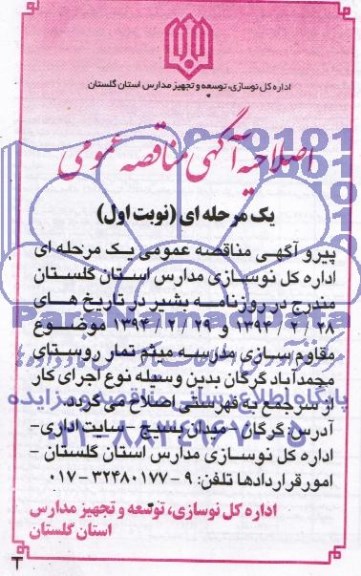 اداره کل نوسازی، توسعه و تجهیز مدارس استان گلستان
اصلاحیه آگهی مناقصه عمومی
یک مرحله ای (نوبت اول)
پیرو آگهی مناقصه عمومی یک مرحله ای
اداره کل نوسازی مدارس استان گلستان
مندرج در روزنامه بشیر در تاریخ های
۱۳۹۴/۲/۲۸ و ۱۳۹۴/۲/۲۹ موضوع
مقاوم سازی مدرسه میثم تمار روستای
محمدآباد گرگان بدین وسیله نوع اجرای کار
از سرجمع به فهرستی اصلاح می گردد.
آدرس: گرگان - میدان بسیج - سایت اداری -
اداره کل نوسازی مدارس استان گلستان -
امور قراردادها تلفن: ۹ - ۳۲۴۸۰۱۷۷ - ۰۱۷
اداره کل نوسازی، توسعه و تجهیز مدارس
استان گلستان
ParsNamadData
پایگاه اطلاع رسانی مناقصه و مزایده